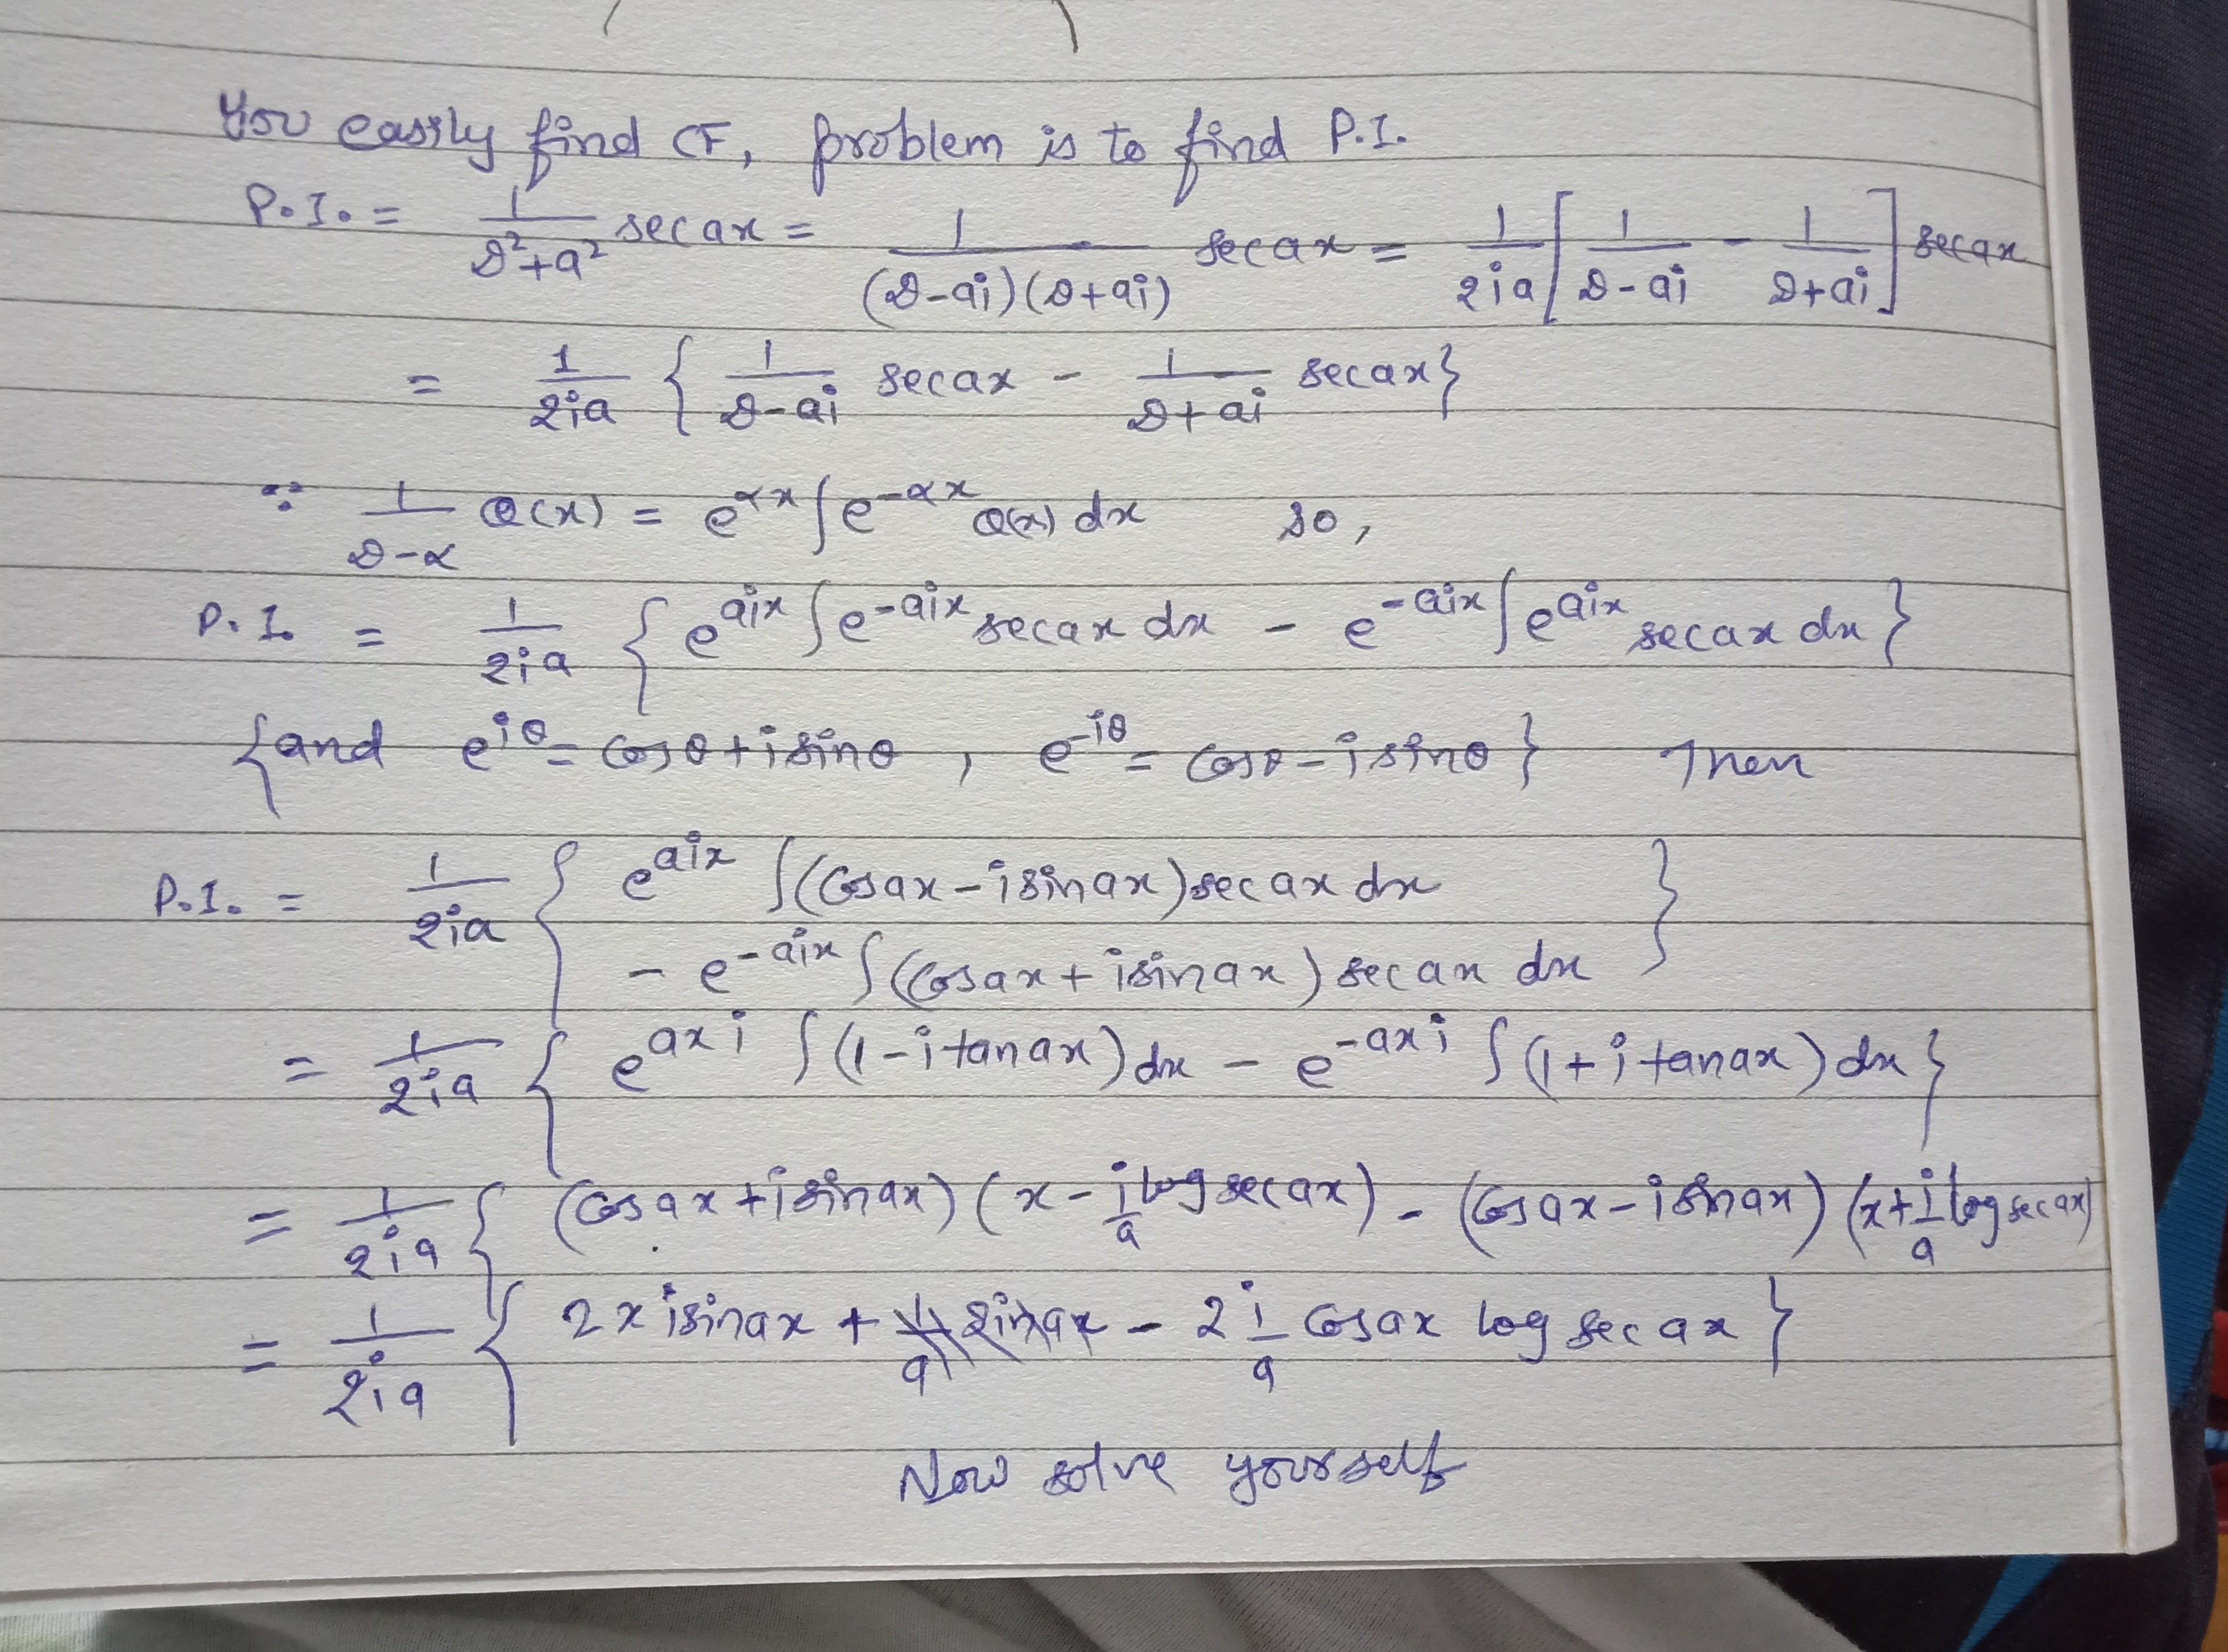 You easily find CF, problem is to find P.I.
P.I. = 1/(D²+a²) secax = 1/((D-ai)(D+ai)) secax = 1/2ia [1/(D-ai) - 1/(D+ai)] secax
= 1/2ia {1/(D-ai) secax - 1/(D+ai) secax}
∵ 1/(D-α) Q(x) = e^αx ∫e^-αx Q(x) dx so,
P.I. = 1/2ia {e^aix ∫e^-aix secax dx - e^-aix ∫e^aix secax dx}
{and e^iθ = cosθ+isinθ, e^-iθ = cosθ-isinθ} Then
P.I. = 1/2ia { e^aix ∫(cosax-isinax)secax dx
- e^-aix ∫(cosax+isinax) secax dx }
= 1/2ia { e^axi ∫(1-itanax)dx - e^-axi ∫(1+itanax)dx}
= 1/2ia { (cosax+isinax) (x - i/a log secax) - (cosax-isinax) (x + i/a log secax)
= 1/2ia { 2xisinax + - 2 i/a cosax log secax }
Now solve yourself